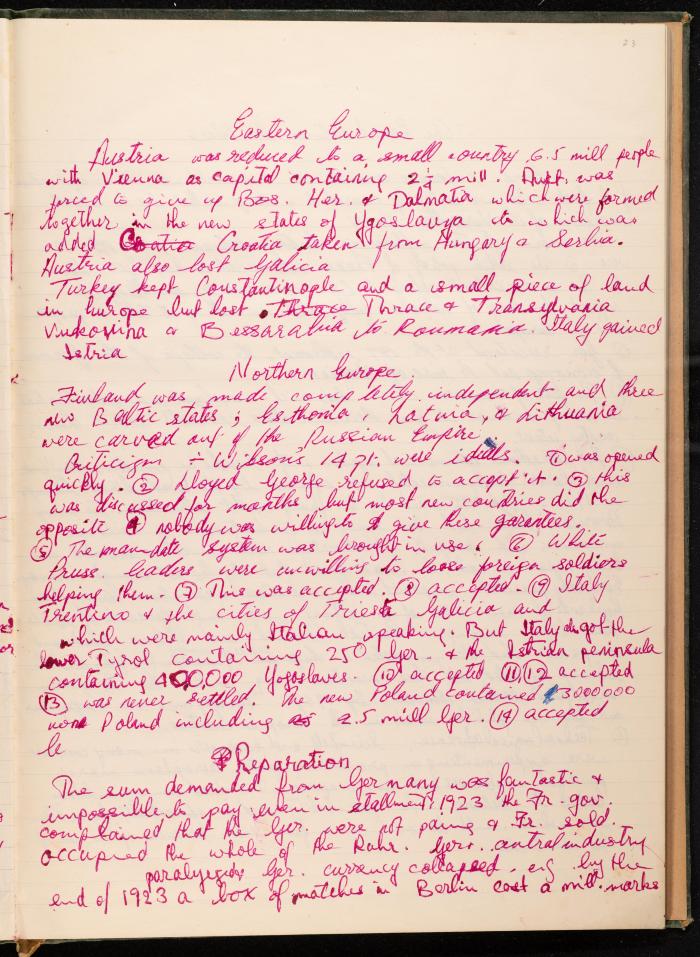 23
Eastern Europe
Austria was reduced to a small country 6.5 mill people
with Vienna as capital containing 2 1/4 mill. Aust. was
forced to give up Bos. Her. & Dalmatia which were formed
together in the new states of Ygoslavya to which was
added Croatia Croatia taken from Hungary & Serbia.
Austria also lost Galicia
Turkey kept Constantinople and a small piece of land
in Europe but lost Thrace Thrace & Transylvania
& Bessarabia to Roumania. Italy gained
Istria
Northern Europe
Finland was made completely independent and three
new Baltic states; Esthonia, Latvia, & Lithuania
were carved out of the Russian Empire.
Criticism ÷ Wilson's 14 pt. were ideals. ① was opened
quickly. ② Lloyed George refused to accept it. ③ this
was discussed for months but most new countries did the
opposite ④ nobody was willing to give these garantees.
⑤ The mandate system was brought in use. ⑥ White
Russ. leaders were unwilling to loose foreign soldiers
helping them. ⑦ This was accepted. ⑧ accepted. ⑨ Italy
Trentino & the cities of Trieste Galicia and
which were mainly Italian speaking. But Italy also got the
lower Tyrol containing 250 Ger. & the Istrian peninsula
containing 400,000 Yogoslaves. ⑩ accepted ⑪ ⑫ accepted
⑬ was never settled. The new Poland contained 3000000
Poland including 2.5 mill Ger. ⑭ accepted
le
Reparation
The sum demanded from Germany was fantastic &
impossible to pay even in stallment. 1923 the Fr. gov.
complained that the Ger. were not paing & Fr. sold.
occupied the whole of the Ruhr. Ger. industry
Ger. currency collapsed. by the
end of 1923 a box of matches in Berlin cost a mill. marks